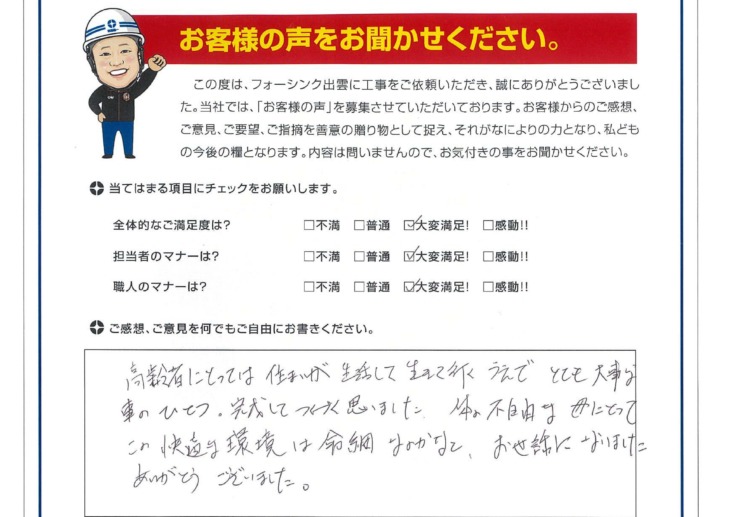 お客様の声をお聞かせください。
この度は、フォーシンク出雲に工事をご依頼いただき、誠にありがとうございまし
た。当社では、「お客様の声」を募集させていただいております。お客様からのご感想、
ご意見、ご要望、ご指摘を善意の贈り物として捉え、それがなによりの力となり、私ども
の今後の糧となります。内容は問いませんので、お気付きの事をお聞かせください。
当てはまる項目にチェックをお願いします。
全体的なご満足度は? □不満 □普通 ☑大変満足! □感動!!
担当者のマナーは? □不満 □普通 ☑大変満足! □感動!!
職人のマナーは? □不満 □普通 ☑大変満足! □感動!!
ご感想、ご意見を何でもご自由にお書きください。
高齢者にとっては 住まいが 生活して 生きて行く うえで とても 大事な
事の ひとつ。完成して つくづく思いました 体の 不自由な 母にとって
この 快適な 環境 は 命綱 なのかなと、お世話に なりました
ありがとう ございました。